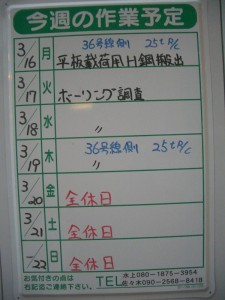 今週の作業予定
3/16 月 36号線側 25t R/C
平板載荷用H鋼搬出
3/17 火 ボーリング調査
3/18 水 〃
3/19 木 36号線側 25t R/C
〃
3/20 金 全休日
3/21 土 全休日
/22 日 全休日
お気付きの点は
右記迄ご連絡下さい。
TEL 水上080-1875-3954
佐々木090-2568-8418